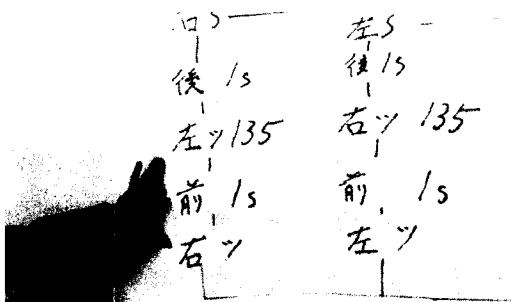 右S
後 1s
左ツ135
前 1s
右ツ
左S
後 1s
右ツ 135
前 1s
左ツ